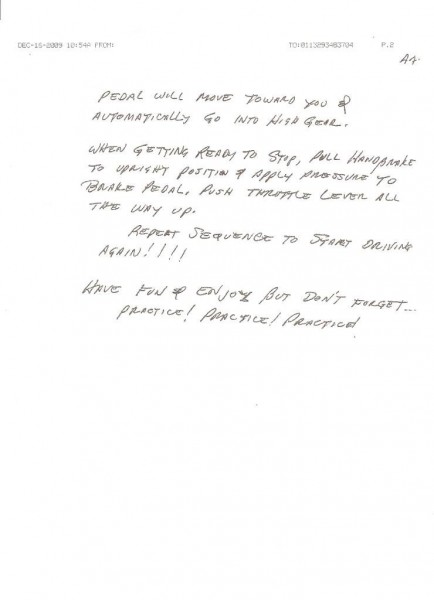 DEC-16-2009 10:54A FROM: TO:0113293483704 P.2
A4
PEDAL WILL MOVE TOWARD YOU &
AUTOMATICALLY GO INTO HIGH GEAR.
WHEN GETTING READY TO STOP, PULL HANDBRAKE
TO UPRIGHT POSITION & APPLY PRESSURE TO
BRAKE PEDAL. PUSH THROTTLE LEVER ALL
THE WAY UP.
REPEAT SEQUENCE TO START DRIVING
AGAIN!!!!
HAVE FUN & ENJOY BUT DON'T FORGET...
PRACTICE! PRACTICE! PRACTICE!